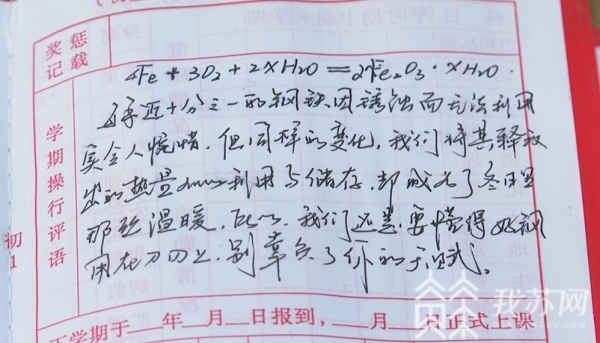 科 目 平时 期中 期末 学期
奖惩记载
4Fe + 3O2 + 2xH2O = 2Fe2O3·xH2O.
每年近十分之一的钢铁因锈蚀而无法利用
实令人慨惜.但同样的变化,我们将其释放
出的热量加以利用与储存,却成为了冬日里
那丝温暖.所以,我们还是要懂得好钢
用在刀刃上.别辜负了你的天赋。
学期操行评语
初1
下学期于 年 月 日报到, 月 日正式上课
我苏网